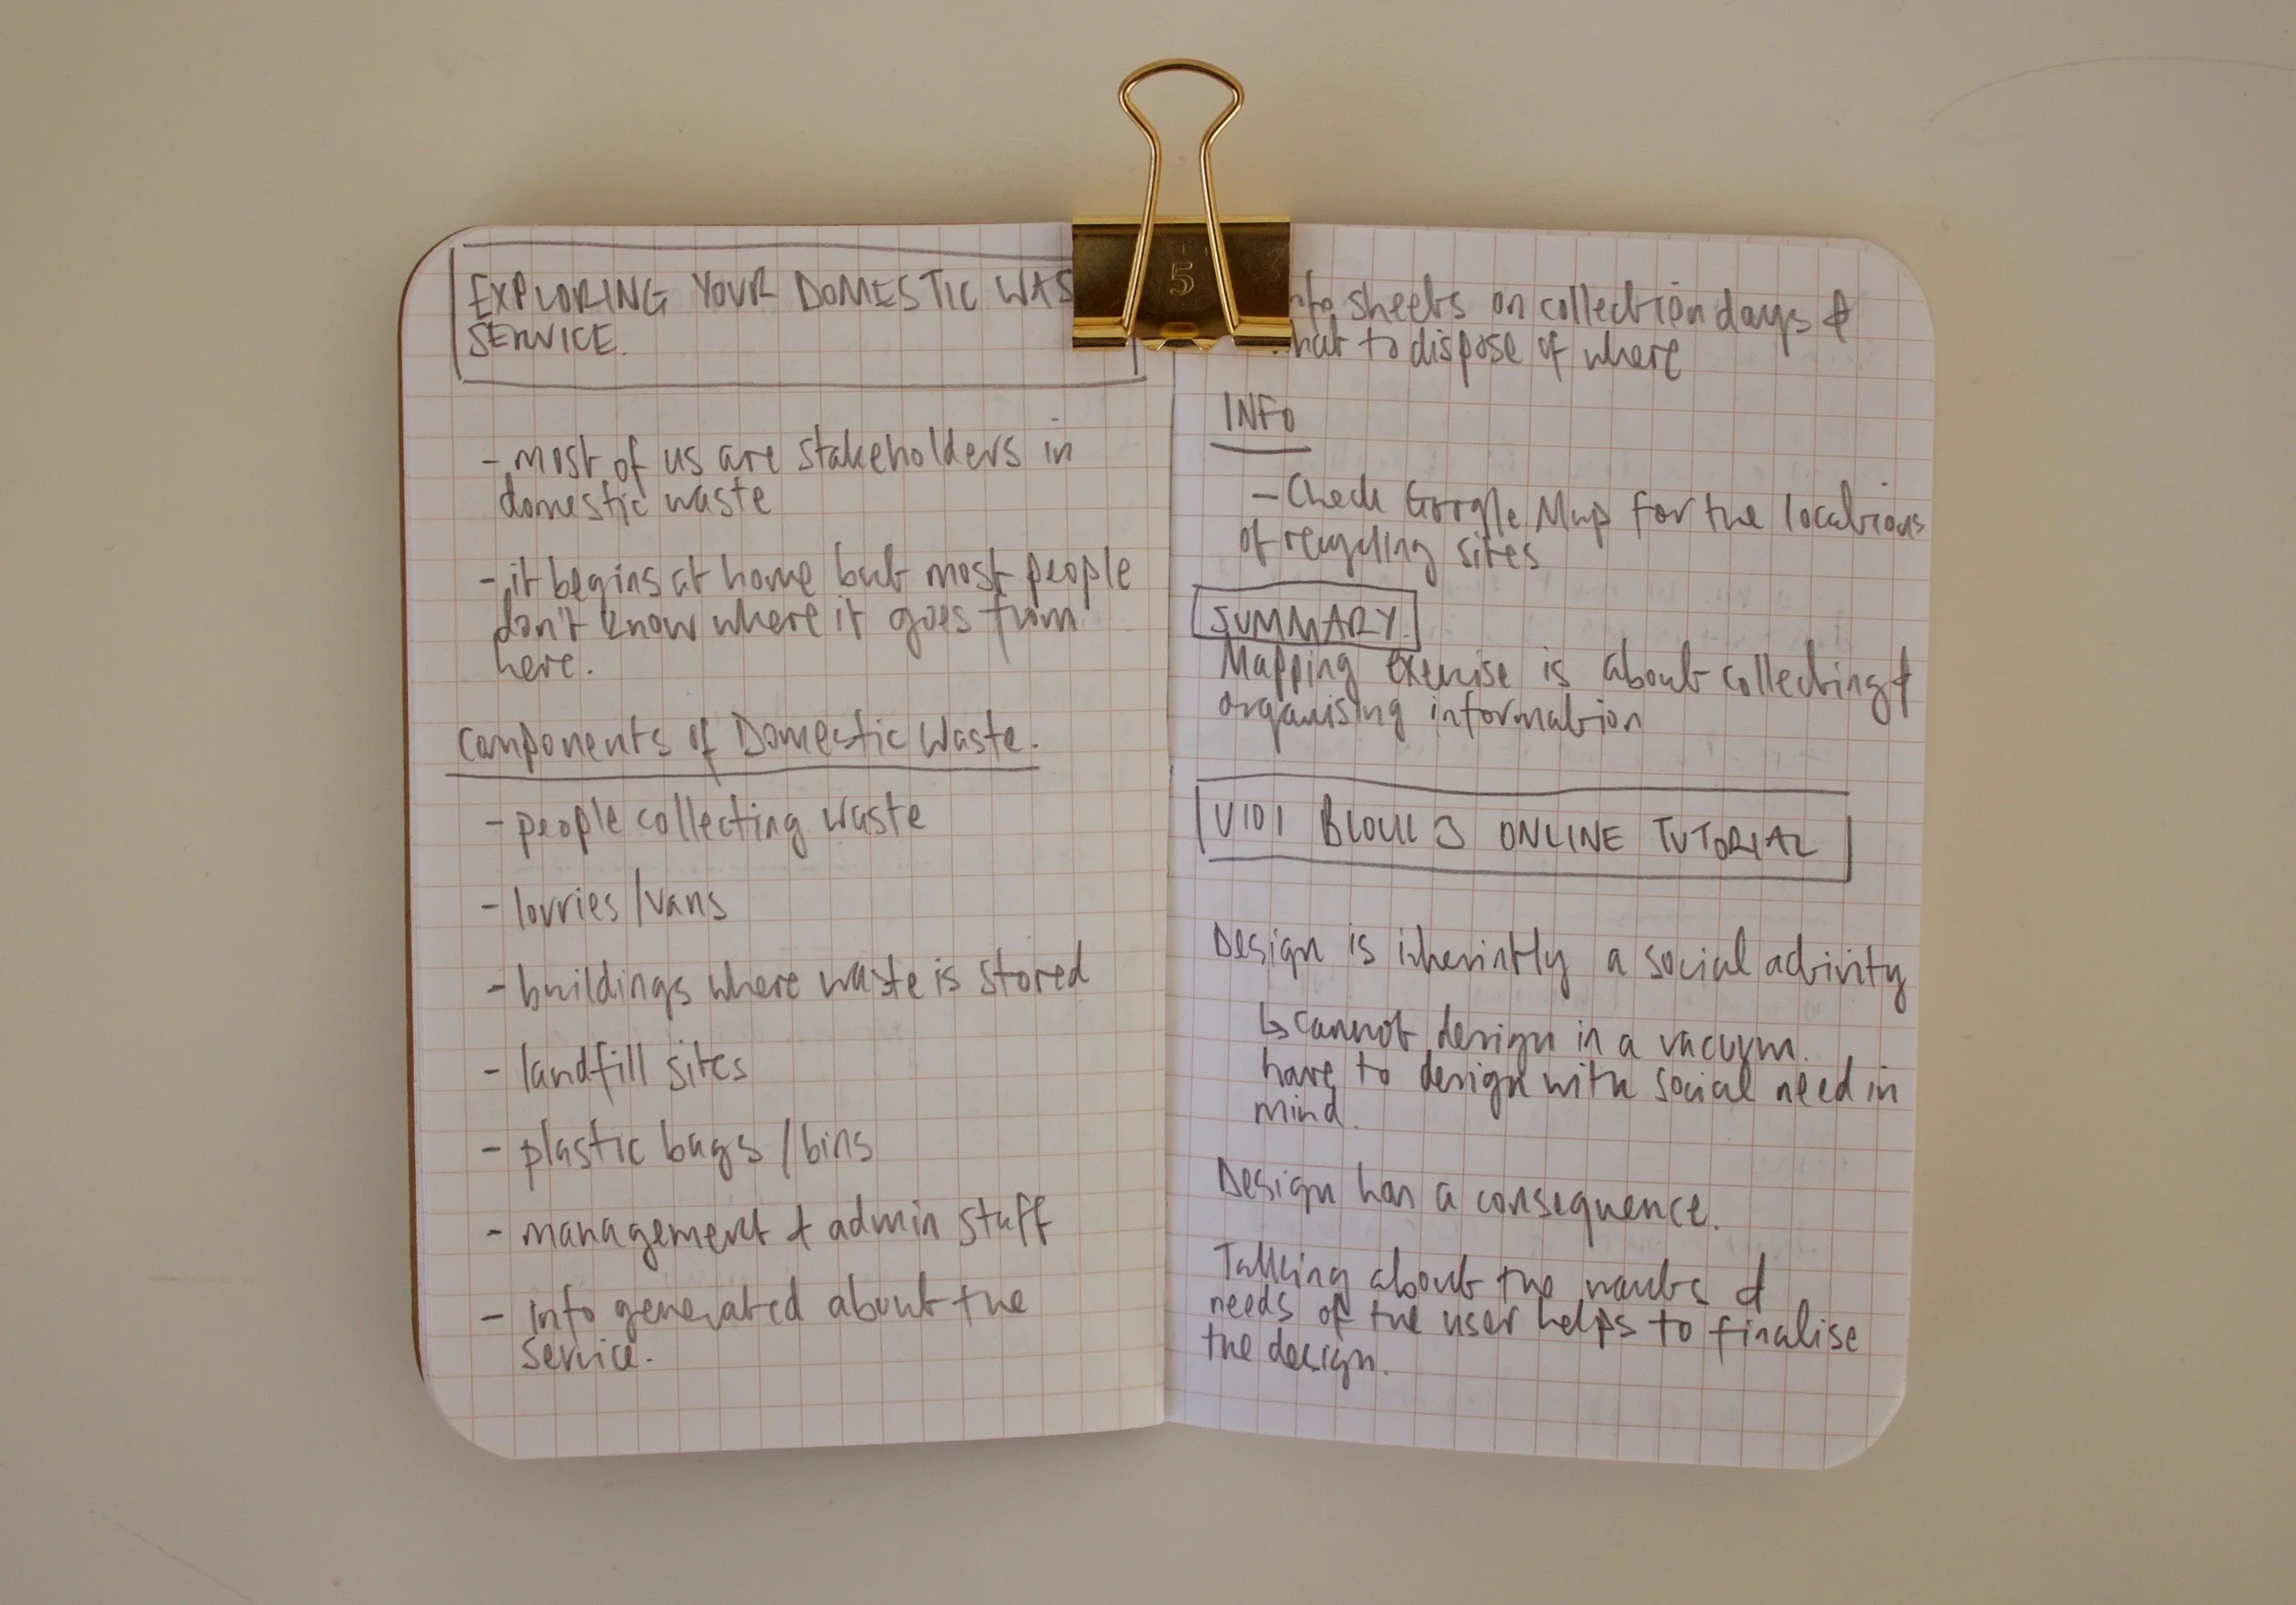 EXPLORING YOUR DOMESTIC WAS
SERVICE.
- most of us are stakeholders in
domestic waste
- it begins at home but most people
don't know where it goes from
here.
Components of Domestic Waste.
- people collecting waste
- lorries/vans
- buildings where waste is stored
- landfill sites
- plastic bags/bins
- management & admin staff
- info generated about the
service.
5
nfo sheets on collection days &
hat to dispose of where
INFO
- Check Google Map for the locations
of recycling sites
SUMMARY.
Mapping exercise is about collecting &
organising information
U101 BLOCK 3 ONLINE TUTORIAL
Design is inherintly a social activity
↳ cannot design in a vacuum.
have to design with social need in
mind.
Design has a consequence.
Talking about the wants &
needs of the user helps to finalise
the design.